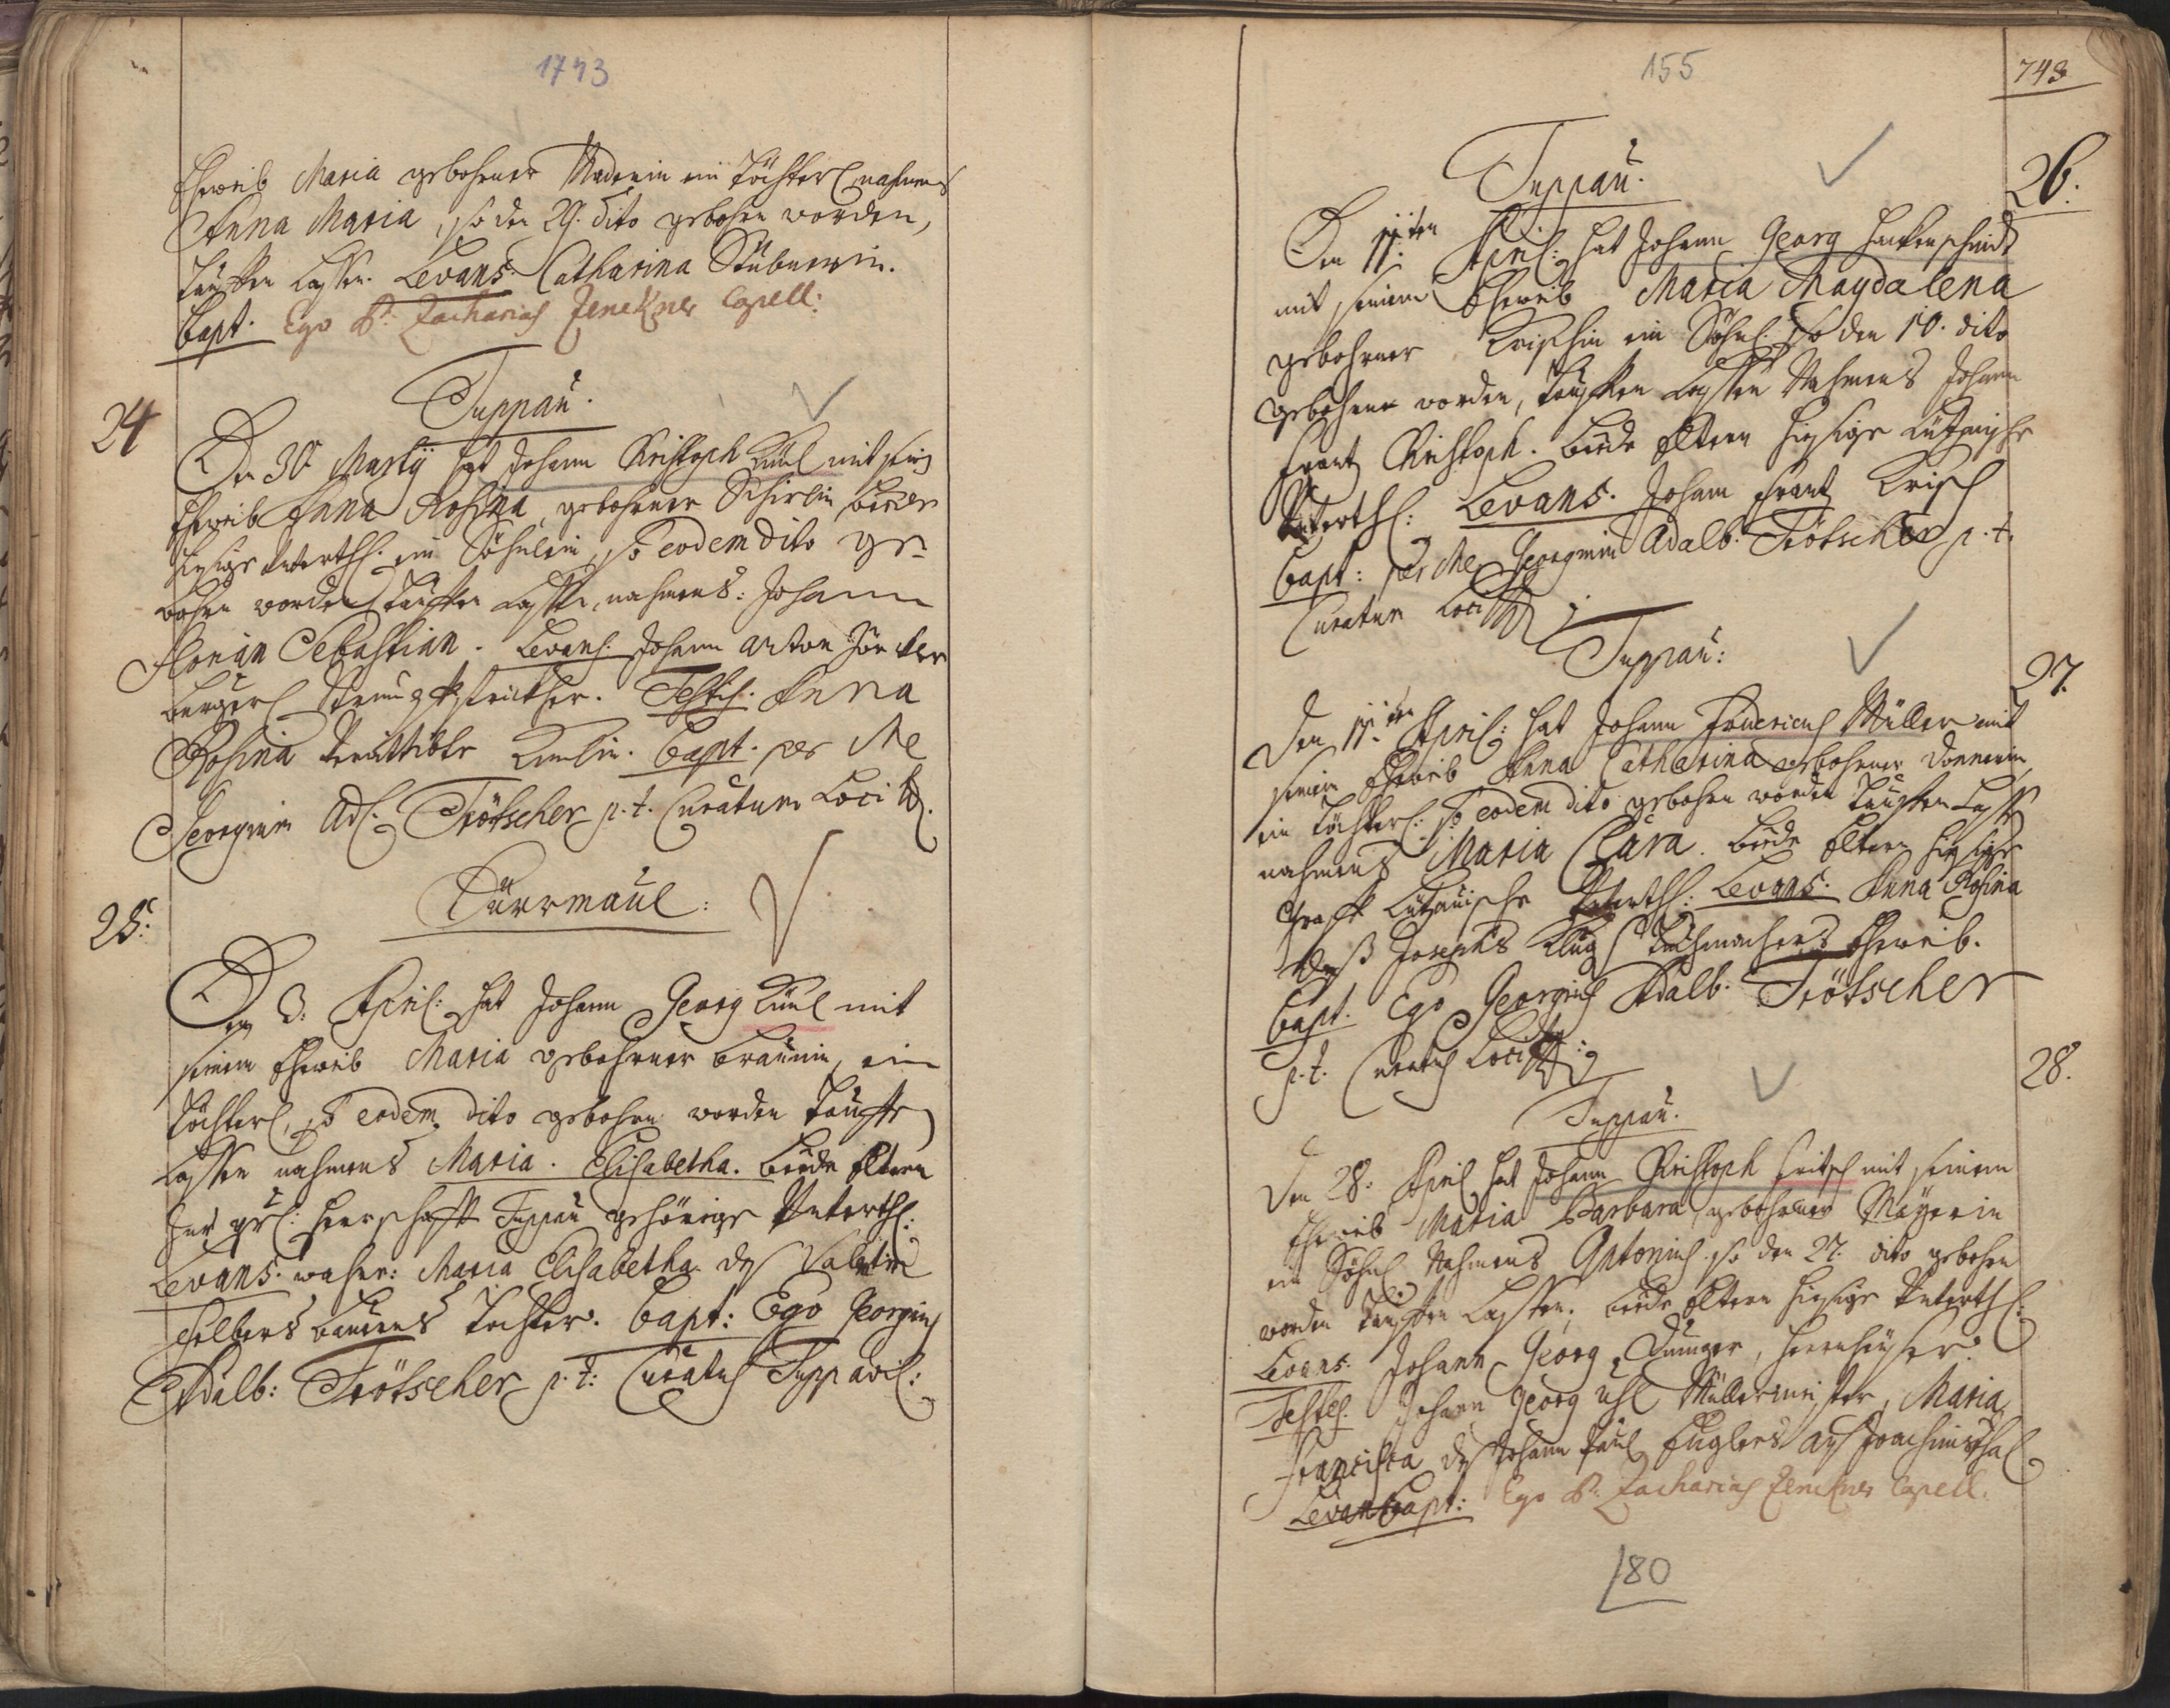 1743
Eheweib Maria gebohrner Maderin ein Töchterl nahmens
Anna Maria, so den 29. dito gebohrn worden,
tauffen lassen. Levans. Catharina Stübnerin.
Bapt. Ego P. Zacharias Zenckner Capell:
Tuppau.
24
Den 30 Martij hat Johann Christoph Kuul mit sein
Eheweib Anna Rosina, gebohrner Schirlin beede
hiesige Unterth. ein Söhnlein, so eodem dito ge-
bohrn worden tauffen lassen, nahmens: Johann
Florian Sebastian. Levans. Johann Anton
burgerl. Testis. Anna
Rosina Bapt. per Me
Georgium Ad. Trötscher p.t. Curatum Loci
Dürrmaul:
25.
Den 3. April: hat Johann Georg Kuul mit
seinem Eheweib Maria gebohrner Braunin, ein
Töchterl, so eodem dito gebohrn worden Tauffen
lassen nahmens Maria. Elisabetha. beede Eltern
zur Herrschafft Tuppau gehörige Unterth:
Levans. Maria Elisabetha des Valentin
baurens Tochter. Bapt: Ego Georgius
Adalb: Trötscher p.t: Curatus Tuppavi:
155
743
Tuppau.
26.
Den 11ten April: hat Johann Georg Hackenschmidt
mit seinem Eheweib Maria Magdalena
gebohrner Krischin ein Söhnl. so den 10. dito
gebohrn worden, tauffen lassen Nahmens Johann
Frantz Christoph. beede Eltern hiesige Lützauische
Unterth: Levans. Johann Frantz Krisch
Bapt: per Me Georgium Adalb. Trötscher p.t.
Curatum Loci
Tuppau:
27.
Den 11ten April: hat Johann Fridericus Müller mit
seinem Eheweib Anna Catharina gebohrner Donnerin,
ein Töchterl: so eodem dito gebohrn worden Tauffen lassen
nahmens Maria Clara. beede Eltern hiesige
Gräff. Lützauische Unterth: Levans. Anna Rosina
deß Josephs Klug Tuchmachers Eheweib.
Bapt. Ego Georgius Adalb. Trötscher
p.t. Curatus Loci
28.
Tuppau.
Den 28. April hat Johann Christoph Fritsch mit seinem
Eheweib Maria Barbara, gebohrner Mayerin
ein Söhnl Nahmens Antonius. so den 27. dito gebohrn
worden tauffen lassen, beede Eltern hiesige Unterth:
Levans. Johann Georg
Testes. Johann Georg Uhl Müllermeister, Maria
Francisca des Johann Paul Euglers aus Joachimsthal
Levan Bapt: Ego P. Zacharias Zenckner Capell.
180